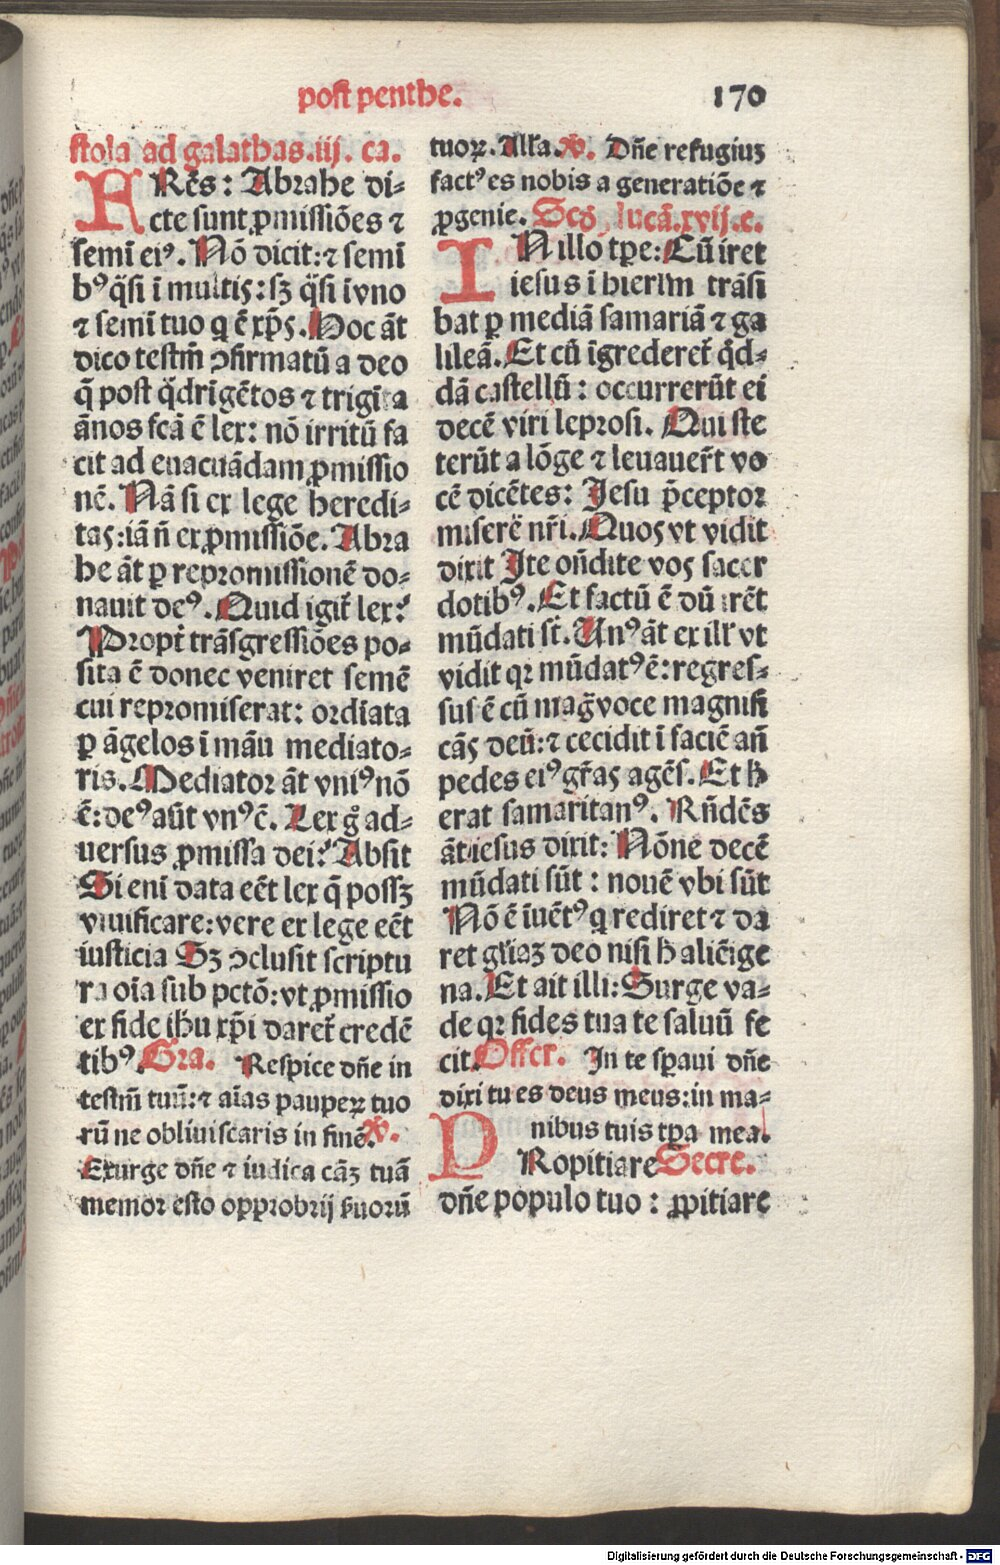 post penthe.
170
stola ad galathas.iij. ca.
FRẽs: Abrahe di-
cte sunt ꝓmissiões ⁊
semĩ eiꝰ. Nõ dicit:⁊ semĩ
bꝰ q̃si ĩ multis:sꝫ q̃si ĩ vno
⁊ semĩ tuo q ẽ xp̃s. Hoc ãt
dico testm̃ ↄfirmatũ a deo
q̃ post q̃drĩgẽtos ⁊ trigĩta
ãnos fcã ẽ lex: nõ irritũ fa
cit ad euacuãdam ꝓmissio
nẽ. Nã si ex lege heredi-
tas:iã ñ ex ꝓmissiõe. Abra
he ãt ꝑ repromissionẽ do-
nauit deꝰ. Quid igit̃ lex:
Propt̃ trãsgressiões po-
sita ẽ donec veniret semẽ
cui repromiserat: ordĩata
ꝑ ãgelos ĩ mãu mediato-
ris. Mediator ãt vniꝰ nõ
ẽ: deꝰ aũt vnꝰ ẽ. Lex g̊ ad-
uersus ꝓmissa dei: Absit
Si enĩ data eẽt lex q̃ possꝫ
viuificare: vere ex lege eẽt
iusticia Sꝫ ↄclusit scriptu
ra oĩa sub pctõ: vt ꝓmissio
ex fide ihu xp̃i daret̃ credẽ
tibꝰ. Gra. Respice dñe in
testm̃ tuũ:⁊ aĩas pauperꝝ tuo
rũ ne obliuiscaris in finẽ. ℣.
Exurge dñe ⁊ iudica cãꝫ tuã
memor esto opprobrij ßuorũ
tuoꝝ. Alla. ℣. Dñe refugiuꝫ
factꝰ es nobis a generatiõe ⁊
ꝓgenie. Scd̃ lucã.xvij.c.
IN illo tp̃e: Cũ iret
iesus ĩ hierlm̃ trãsi
bat ꝑ mediã samariã ⁊ ga
lileã. Et cũ ĩgrederet̃ q̃d-
dã castellũ: occurrerũt ei
decẽ viri leprosi. Qui ste
terũt a lõge ⁊ leuauer̃t vo
cẽ dicẽtes: Jesu p̃ceptor
miserẽ nr̃i. Quos vt vidit
dixit Jte oñdite vos sacer
dotibꝰ. Et factũ ẽ dũ irẽt
mũdati st̃. Unꝰ ãt ex ill' vt
vidit qꝛ mũdatꝰ ẽ: regres-
sus ẽ cũ mag̃ voce magnifi
cãs deũ:⁊ cecidit ĩ faciẽ añ
pedes eiꝰ gr̃as agẽs. Et h̃
erat samaritanꝰ. Rñdẽs
ãt iesus dixit: Nõne decẽ
mũdati sũt: nouẽ vbi sũt
Nõ ẽ ĩuẽtꝰ q rediret ⁊ da
ret gl'iaꝫ deo nisi h̃ aliẽige
na. Et ait illi: Surge va-
de qꝛ fides tua te saluũ fe
cit. Offer. In te sꝑaui dñe
dixi tu es deus meus: in ma-
nibus tuis tp̃a mea.
PRopitiare Secre.
dñe populo tuo: ꝓpitiare
Digitalisierung gefördert durch die Deutsche Forschungsgemeinschaft - DFG